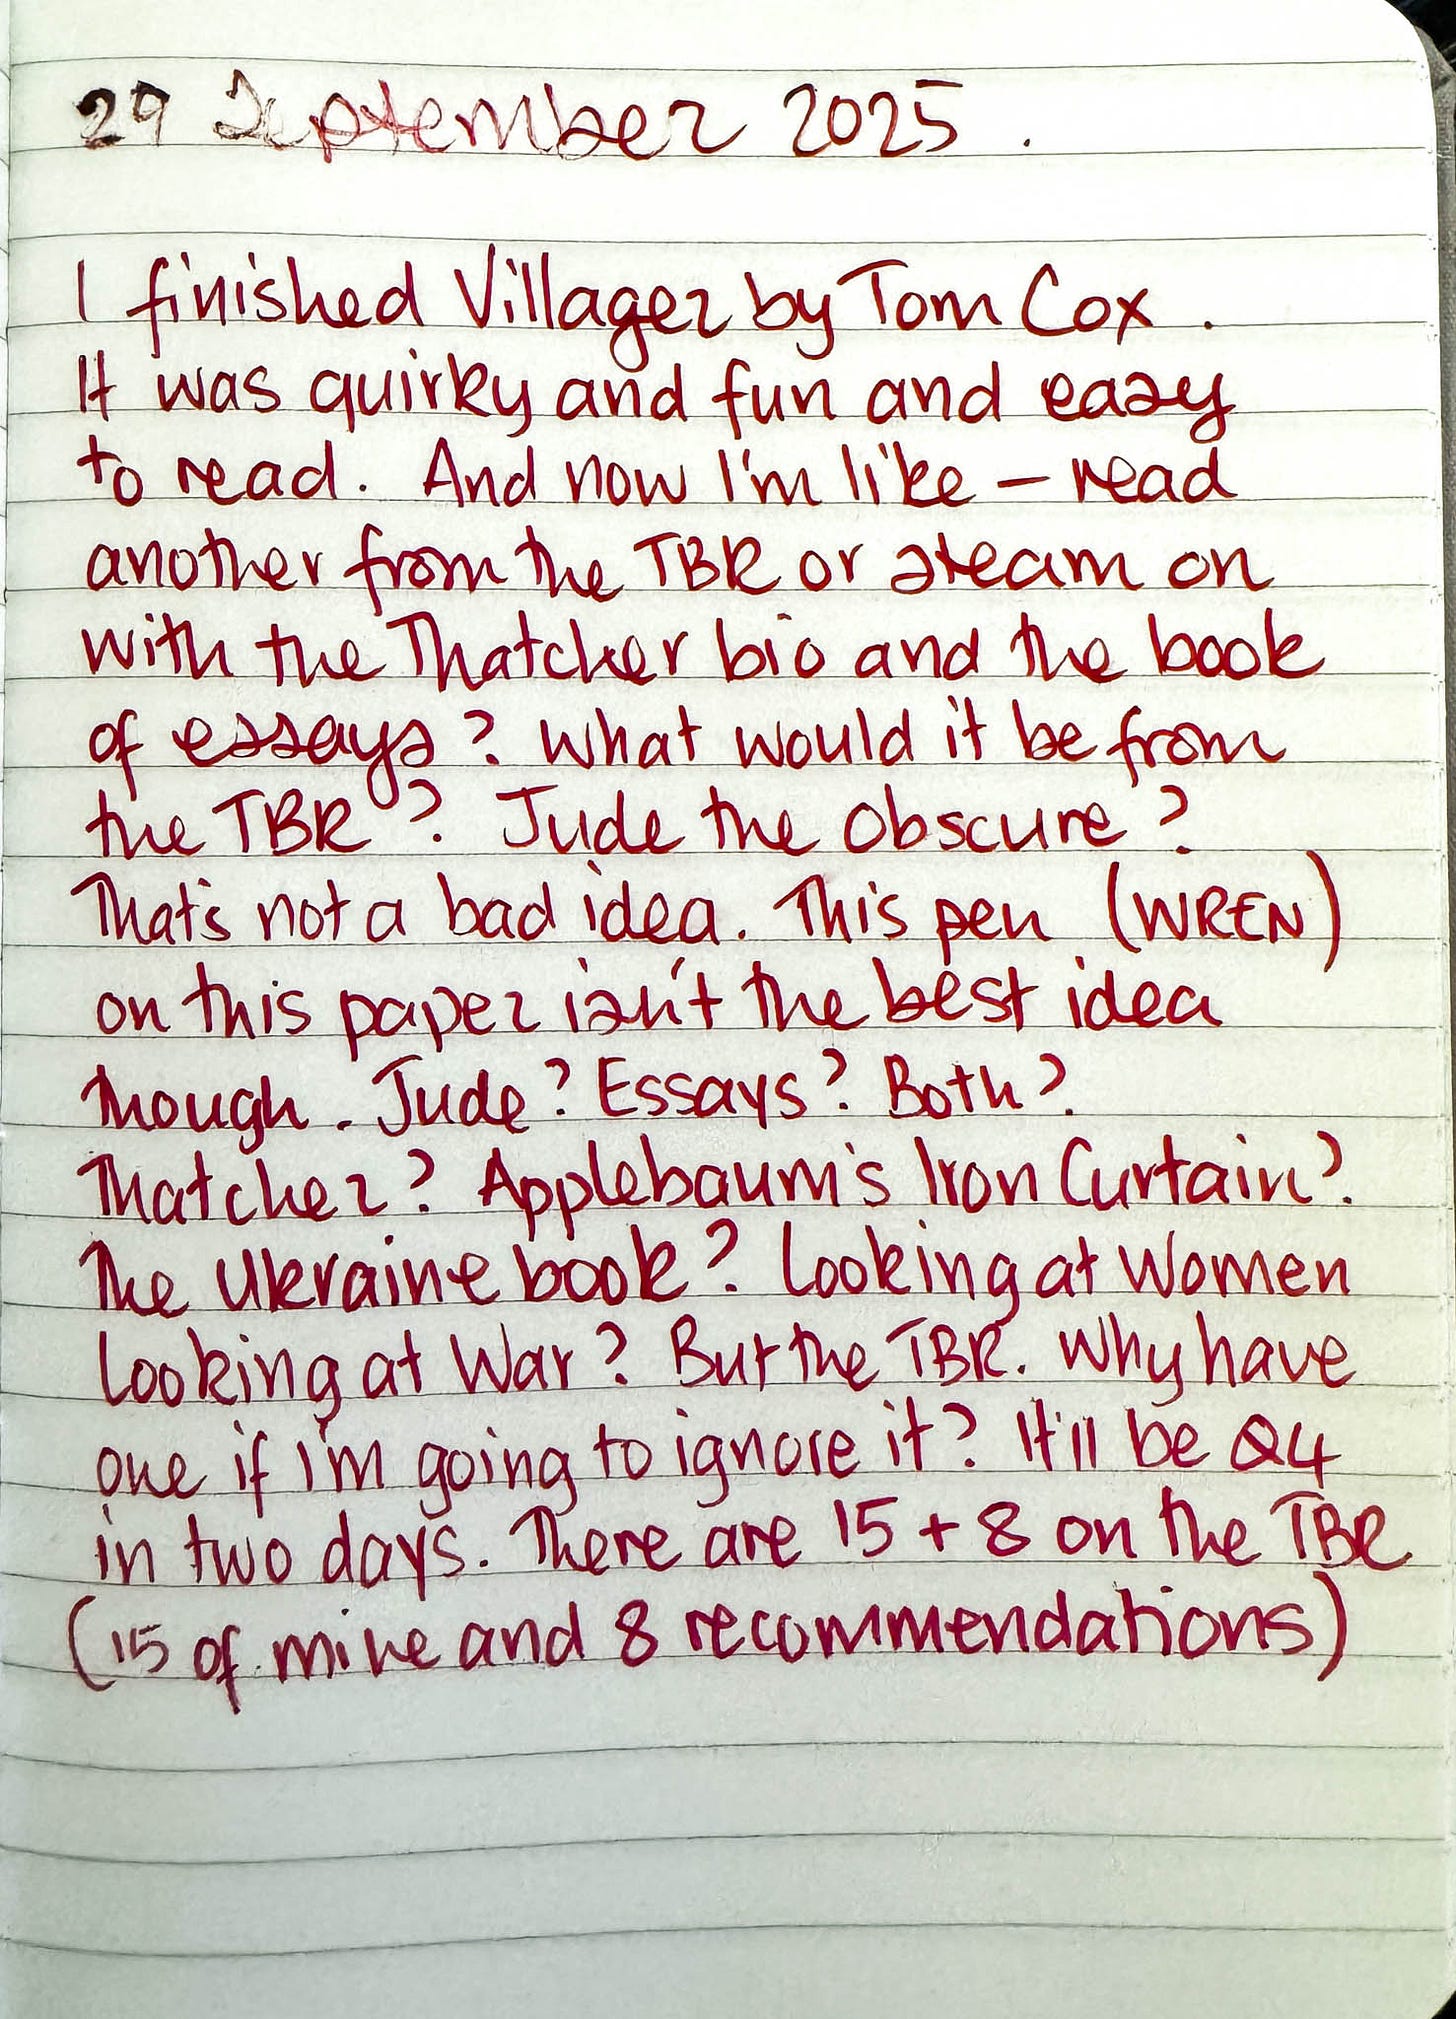 29 September 2025.
I finished Villager by Tom Cox.
It was quirky and fun and easy
to read. And now I'm like – read
another from the TBR or steam on
with the Thatcher bio and the book
of essays? What would it be from
the TBR? Jude the Obscure?
That's not a bad idea. This pen (WREN)
on this paper isn't the best idea
though. Jude? Essays? Both?
Thatcher? Applebaum's Iron Curtain?
The Ukraine book? Looking at Women
Looking at War? But the TBR. Why have
one if I'm going to ignore it? It'll be Q4
in two days. There are 15 + 8 on the TBR
(15 of mine and 8 recommendations)